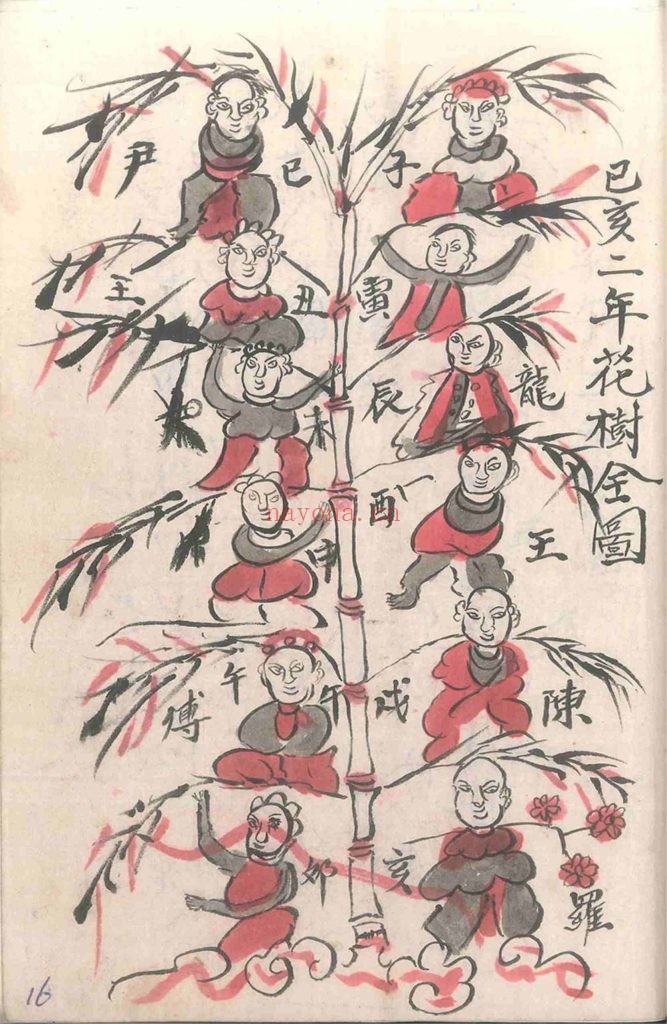 巳亥二年花樹全圖
子
寅
辰
龍
酉
王
戌
陳
亥
羅
尹
巳
王
丑
未
申
傅
午
午
卯
nayona.cn
16